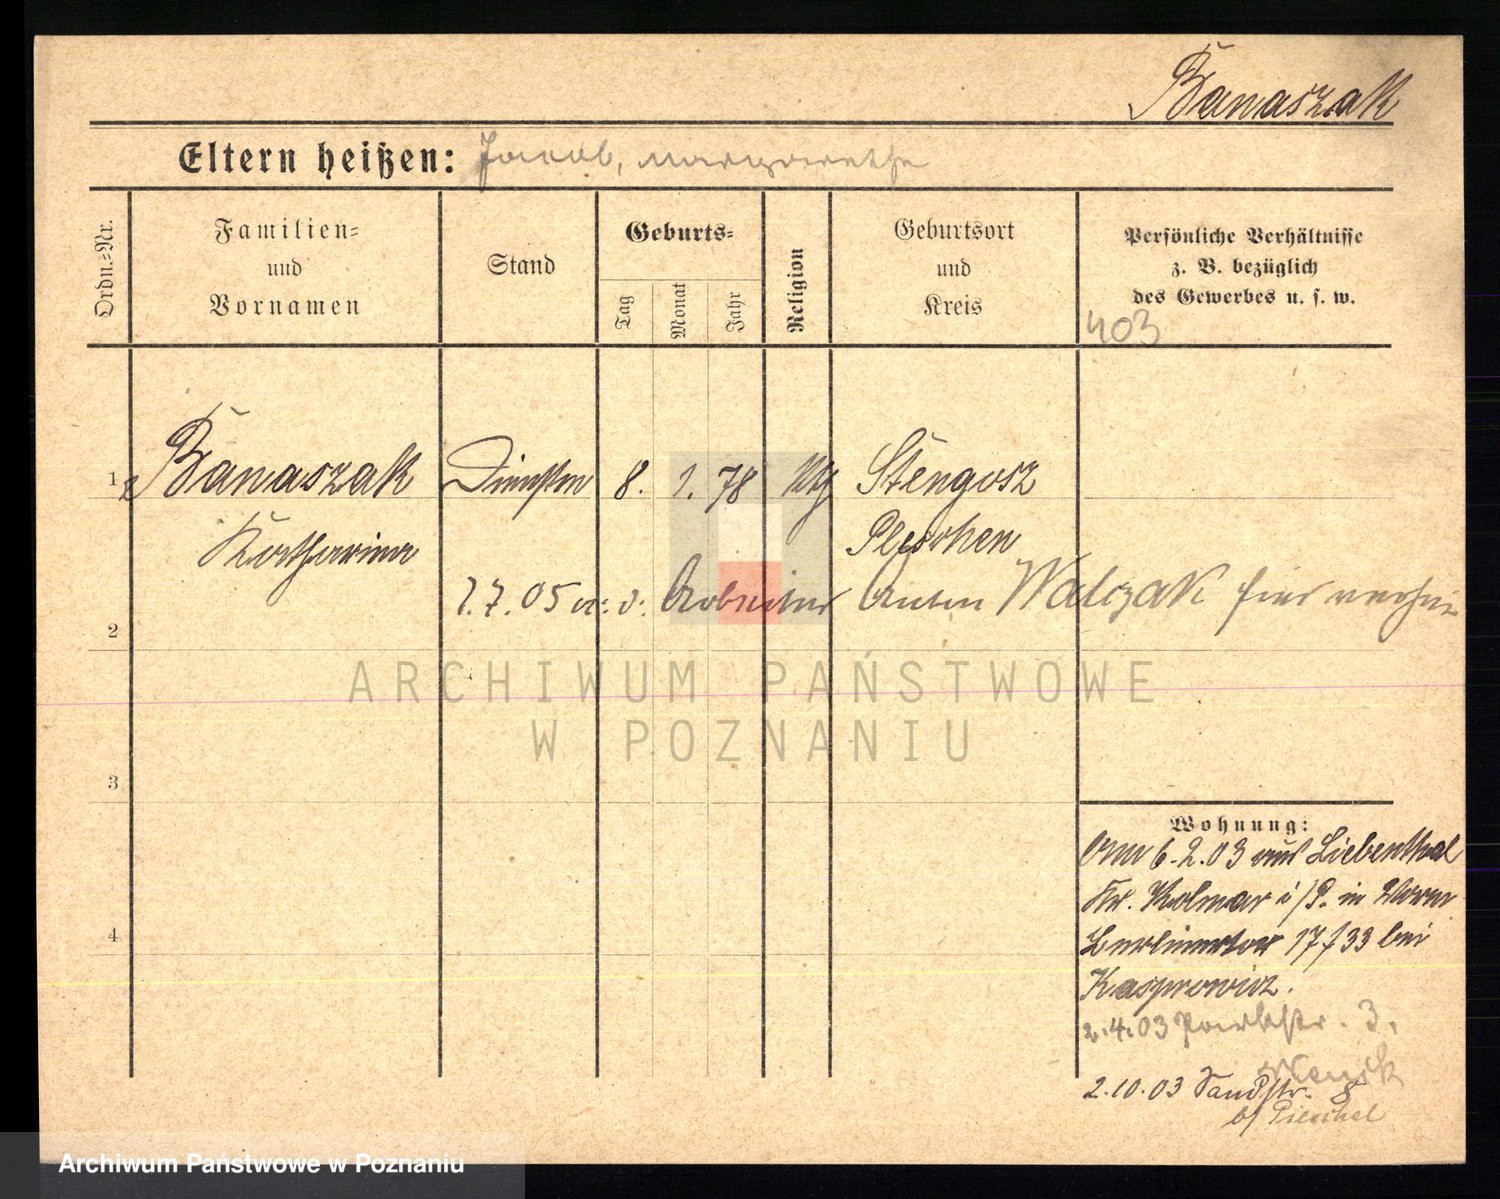 Banaszak
Eltern heißen: Jacob, Margarethe
Ordn.-Nr.
Familien- und Vornamen
Stand
Geburts-
Tag
Monat
Jahr
Religion
Geburtsort und Kreis
Persönliche Verhältnisse
z. B. bezüglich
des Gewerbes u. s. w.
403
1 Banaszak 8. 1. 78 Stengosz
Katharina Pleschen
1.7.05 Arbeiter Anton Walczak hier
2
ARCHIWUM PAŃSTWOWE
W POZNANIU
3
Wohnung:
6.2.03 aus Liebenthal
Kr. Kolmar i/P. in
4
Berlinertor 17/33 bei
Kasprowicz.
2.4.03 Parkstr. 3.
2.10.03 Sandstr. 8
b/ Pieschel
Archiwum Państwowe w Poznaniu